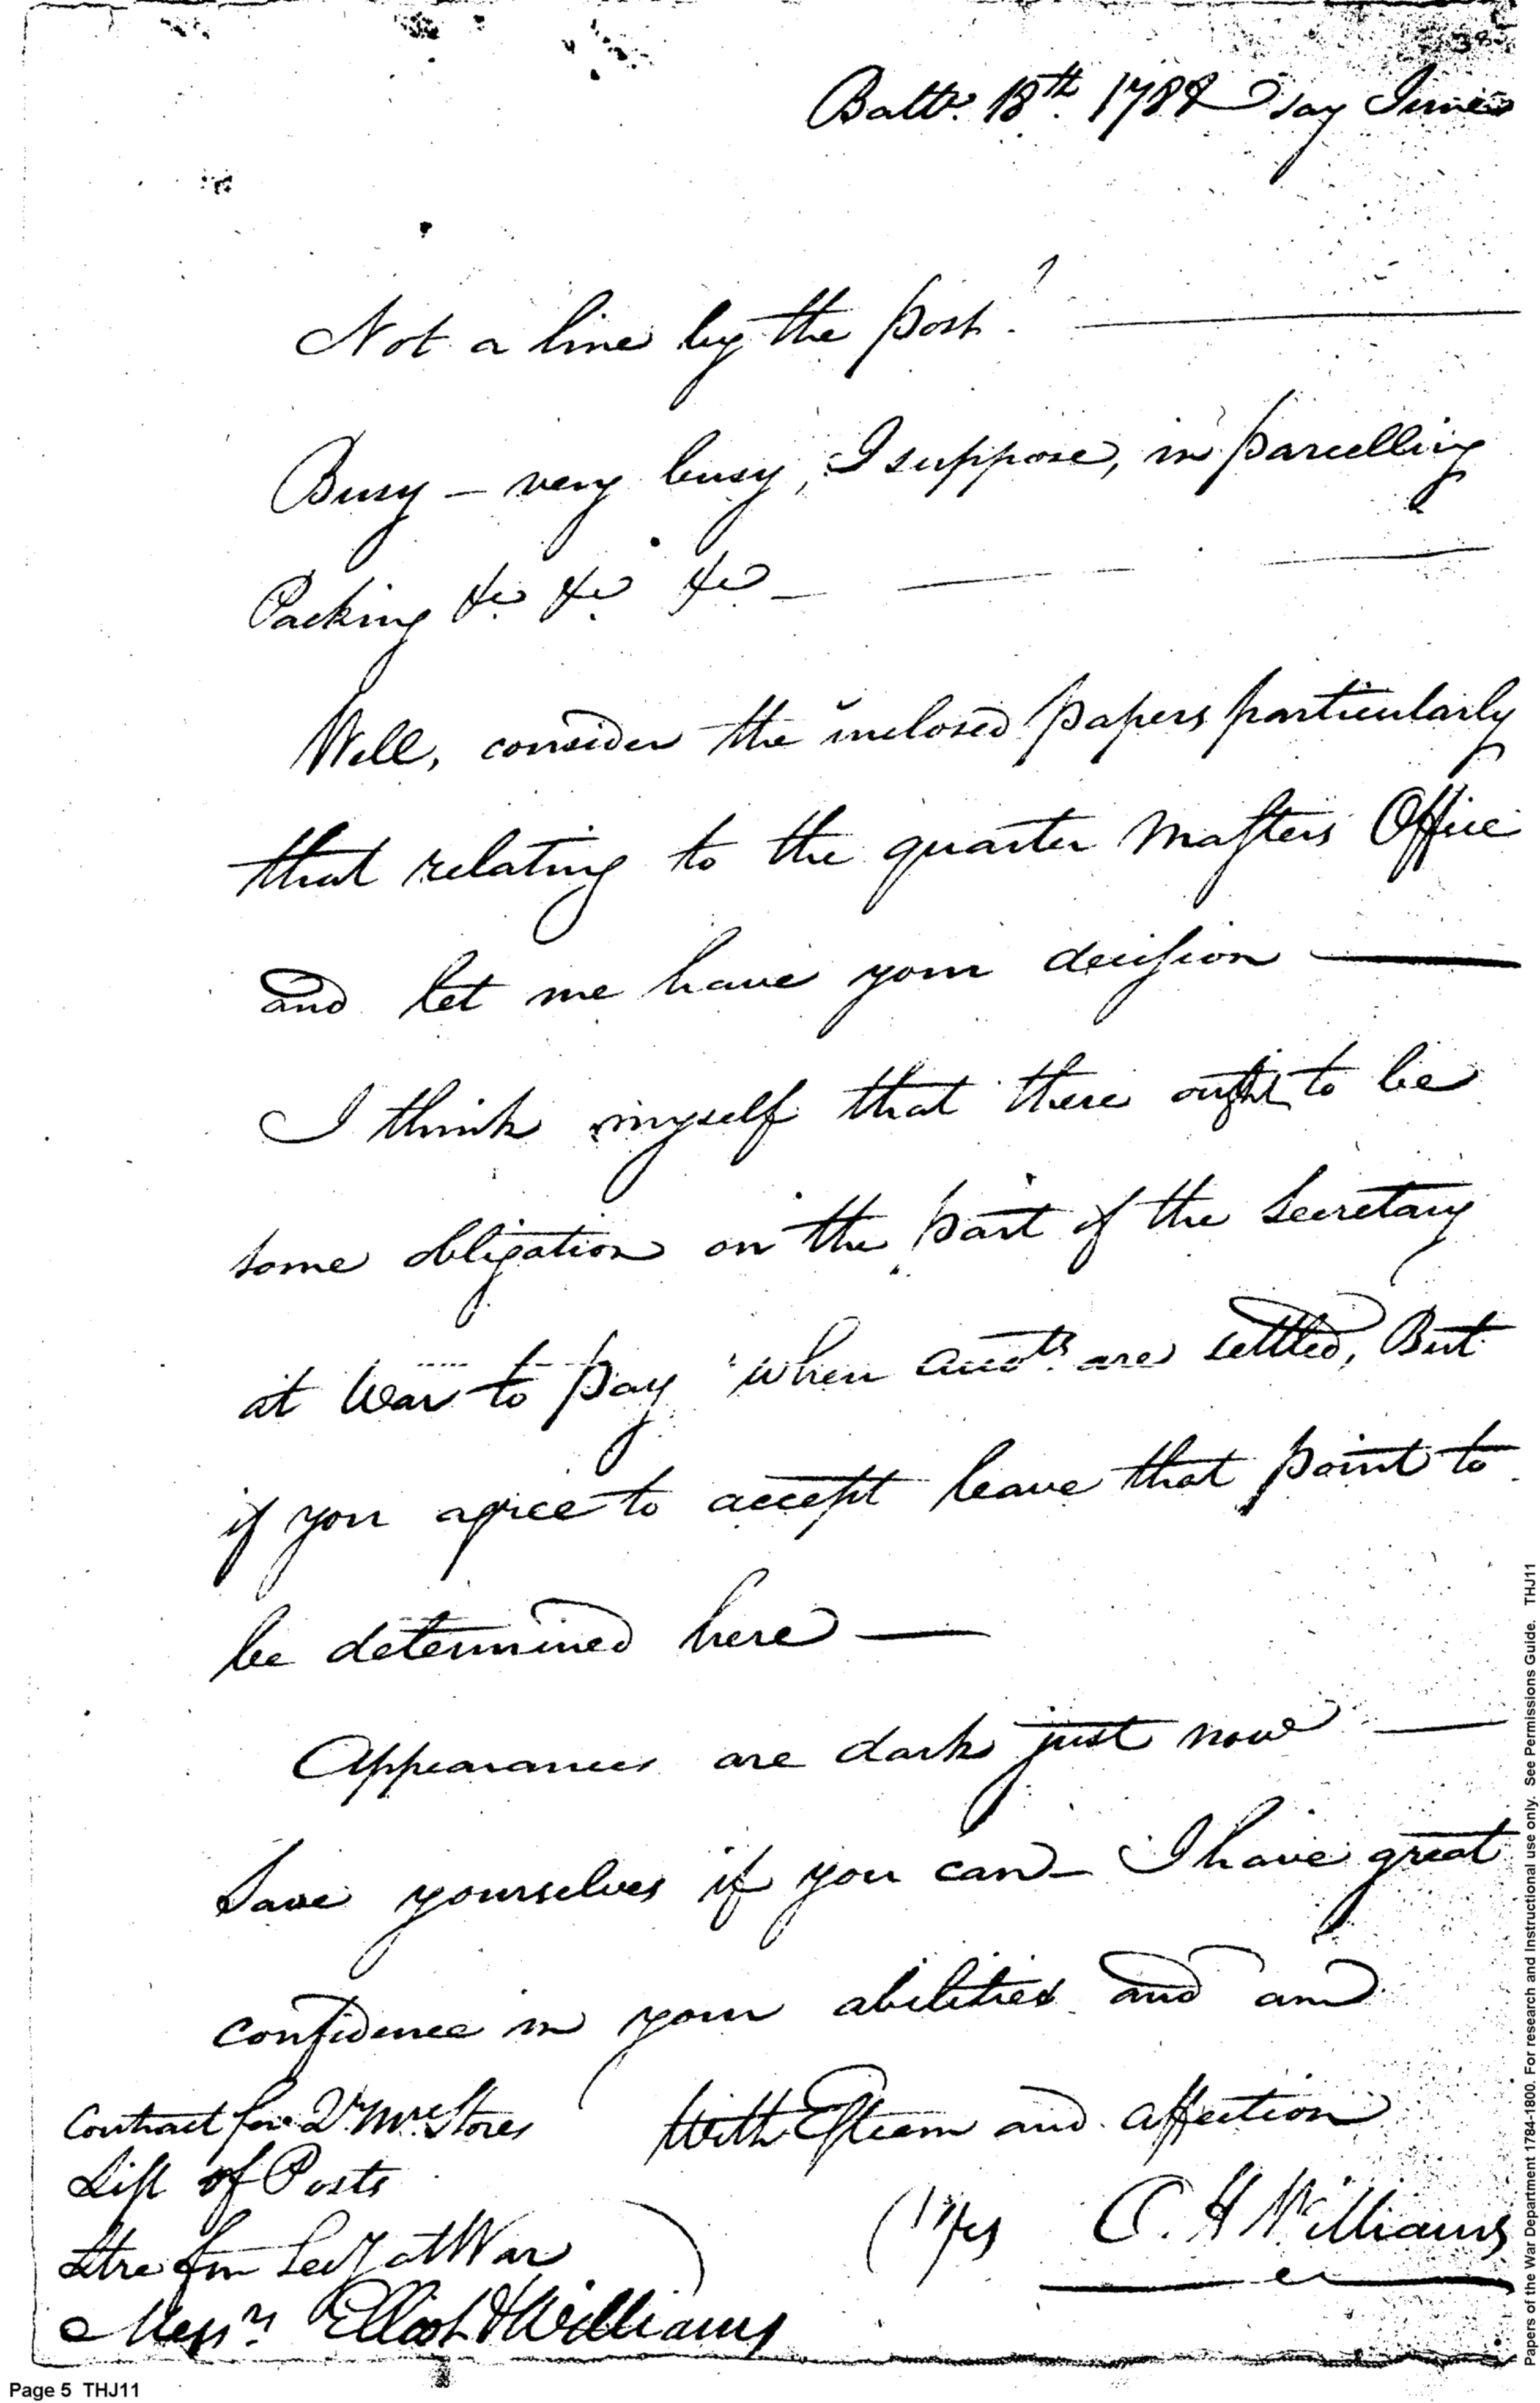 38
Balto. 18th. 1788 Day June
Not a line by the post?
Busy – very busy, I suppose, in parcelling
Packing &c. &c. &c. –
Well, consider the inclosed papers particularly
that relating to the quarter Masters Office
and let me have your decision —
I think myself that there ought to be
some obligation on the part of the Secretary
at War to pay when accots. are settled, But
if you agree to accept leave that point to
be determined here —
Appearances are dark just now —
Save yourselves if you can – I have great
confidence in your abilities and am
with Esteem and affection
O. H Williams
Contract for Qr. Mrs. Stores
List of Posts
Ltre fm Secy at War
Messrs. Elliot & Williams
Page 5 THJ11
Papers of the War Department 1784-1800. For research and Instructional use only. See Permissions Guide. THJ11